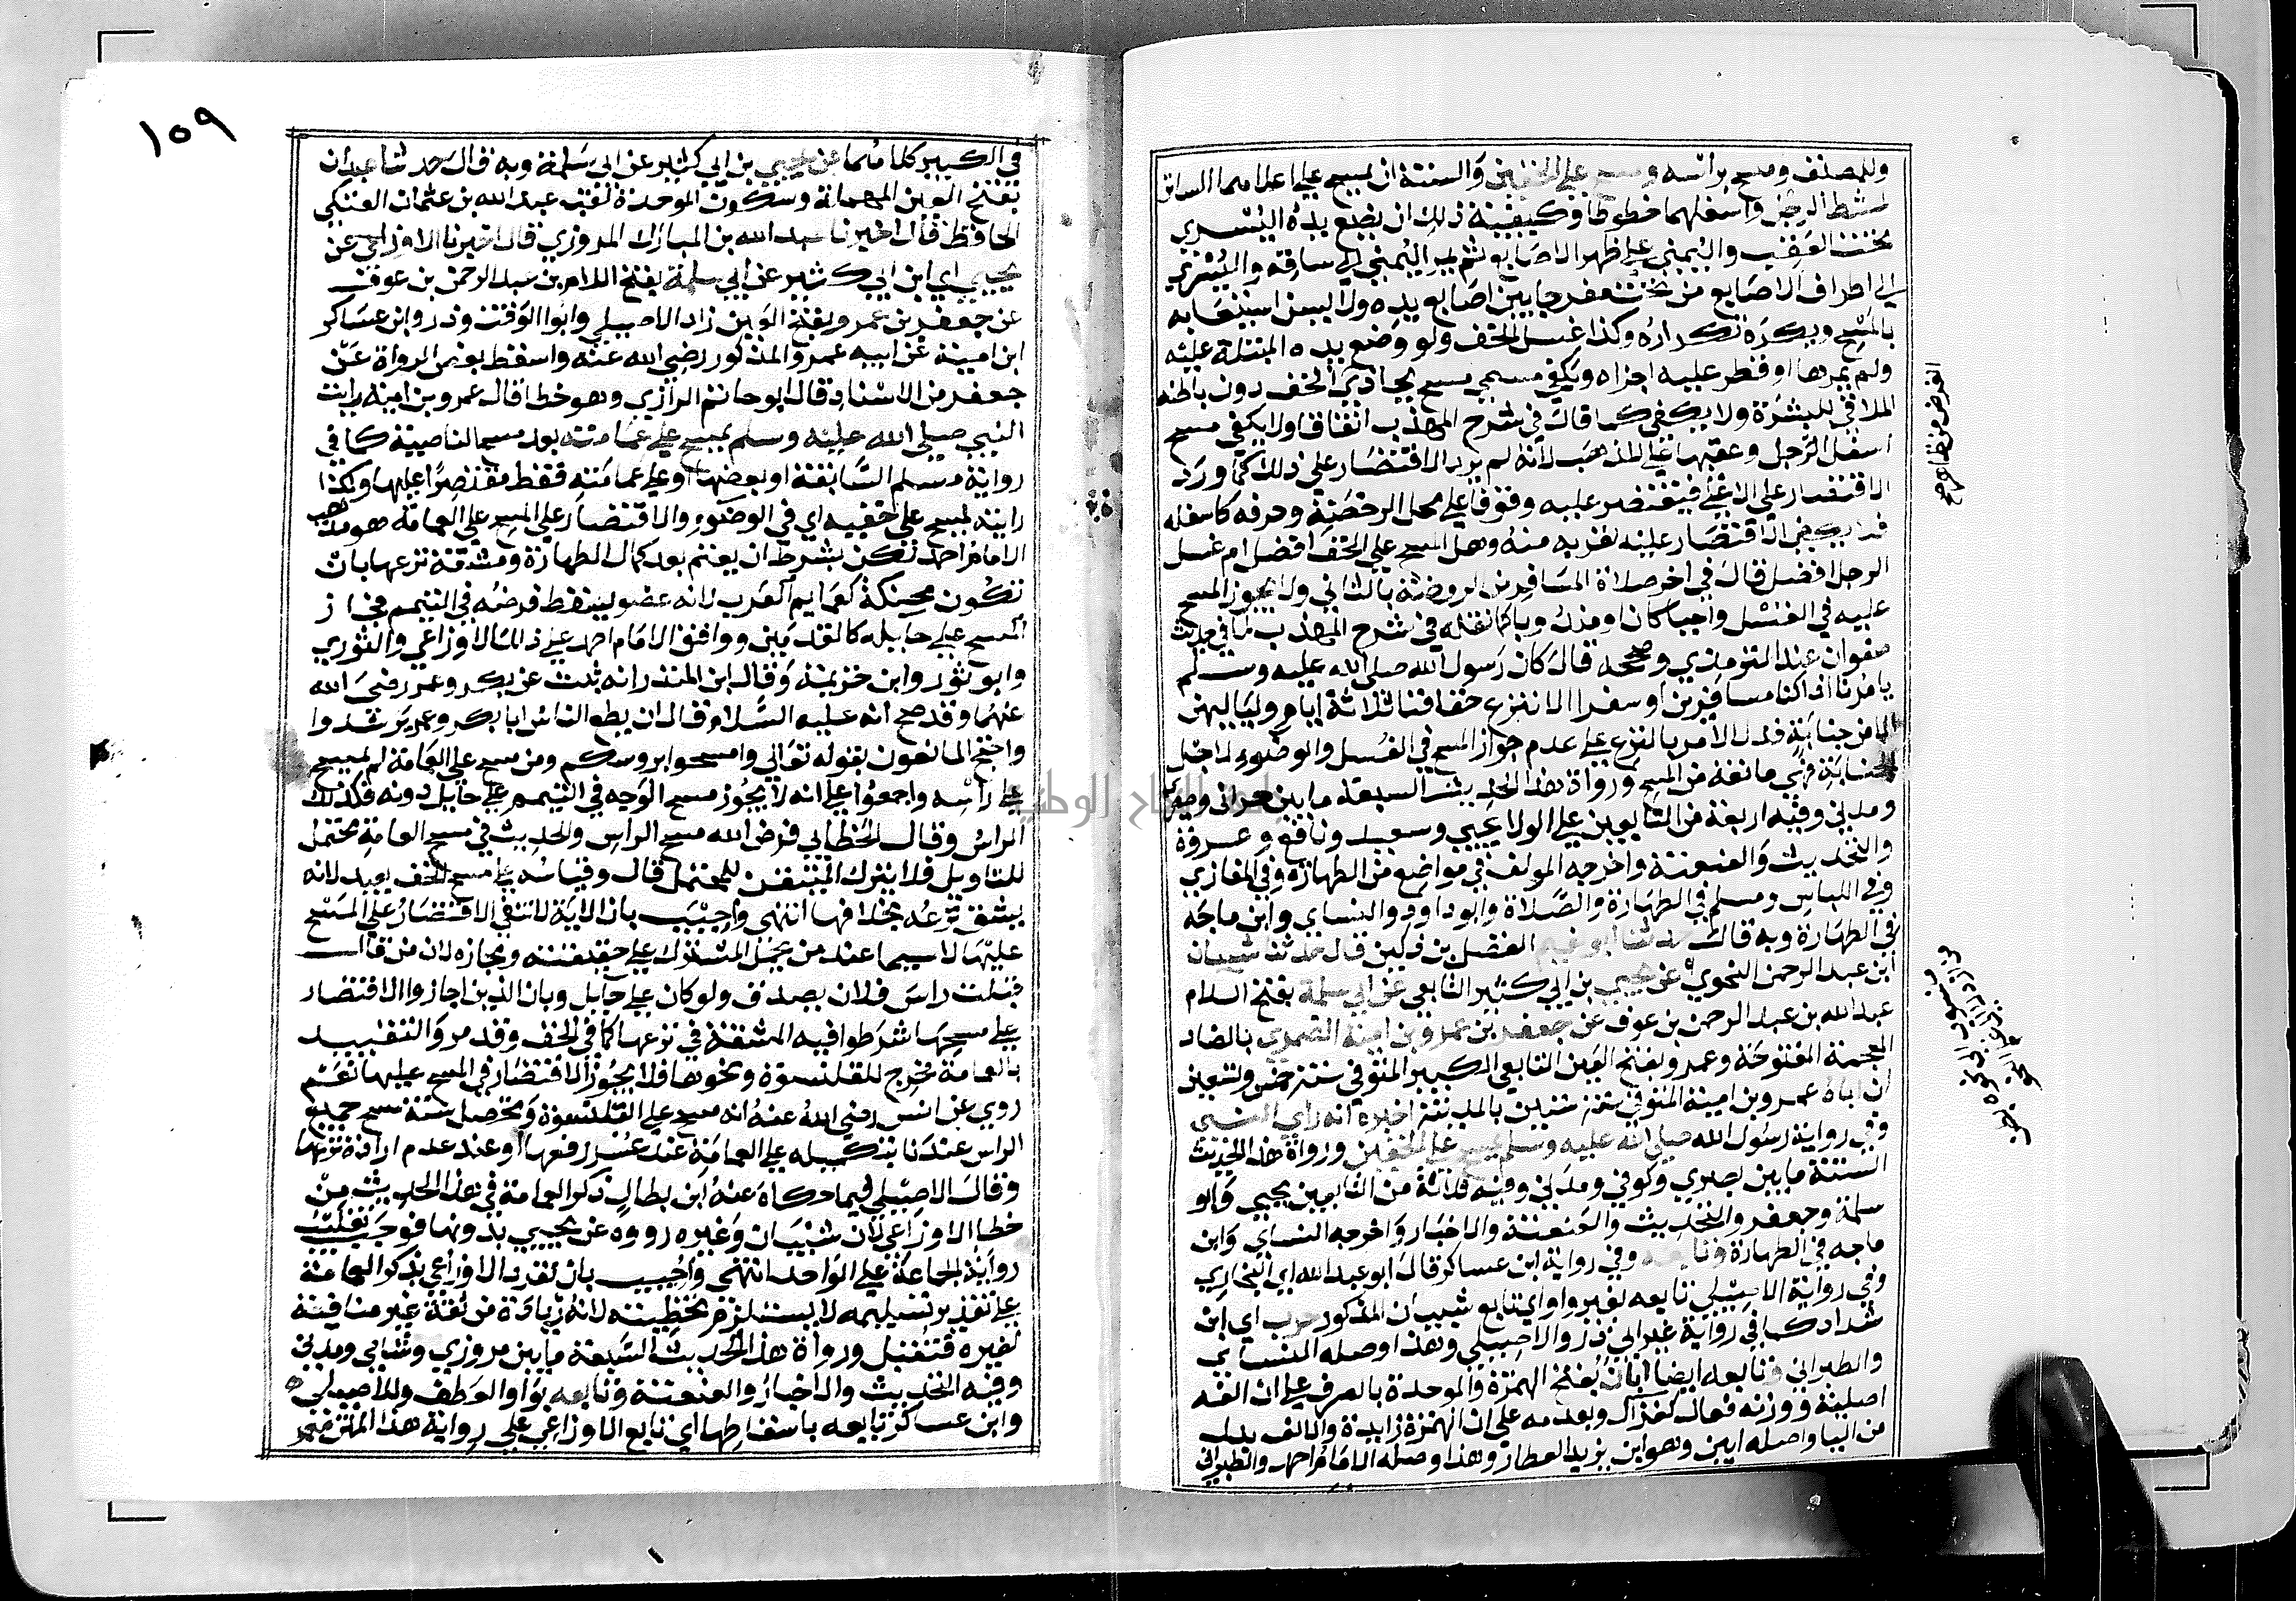 وللمصنف ومسح برأسه ومسح على الخفين والسنة ان يمسح على اعلاهما الساتر
لمشط الرجل واسفلهما خطوطا وكيفية ذلك ان يضع يده اليسرى
تحت العقب واليمنى على ظهر الاصابع ثم يمر اليمنى الى ساقه واليسرى
الى اطراف الاصابع من تحت مفرجا بين اصابع يده ولا يسن استيعابه
بالمسح ويكره تكراره وكذا غسل الخف ولو وضع يده المبتلة عليه
ولم يمرها او قطر عليه اجزاه ويكفي مسمى مسح يحاذي الخف دون باطنه
الملاقي للبشرة ولا يكفي كما قال في شرح المهذب اتفاقا ولا يكفي مسح
اسفل الرجل وعقبها على المذهب لانه لم يرد الاقتصار على ذلك كما ورد
الاقتصار على الاعلى فيقتصر عليه وقوفا على محل الرخصة وحرفه كاسفله
فلا يكفي الاقتصار عليه لقربه منه وهل المسح على الخف افضل ام غسل
الرجل افضل قال في اخر صلاة المسافر من الروضة بالثاني ولا يجوز المسح
عليه في الغسل واجبا كان او مندوبا كما نقله في شرح المهذب لما في حديث
صفوان عند الترمذي وصححه قال كان رسول الله صلى الله عليه وسلم
يامرنا اذا كنا مسافرين او سفرا الا ننزع خفافنا ثلاثة ايام ولياليهن
الا من جنابة فدل الامر بالنزع على عدم جواز المسح في الغسل والوضوء لاجل
الجنابة فهي مانعة من المسح ورواة هذا الحديث السبعة ما بين حراني ومصري
ومدني وفيه اربعة من التابعين على الولا يحيى وسعيد ونافع وعروة
والتحديث والعنعنة واخرجه المولف في مواضع من الطهارة وفي المغازي
وفي اللباس ومسلم في الطهارة والصلاة وابو داود والنساي وابن ماجه
في الطهارة وبه قال حدثنا ابو نعيم الفضل بن دكين قال حدثنا شيبان
ابن عبد الرحمن النحوي عن يحيى بن ابي كثير التابعي عن ابي سلمة بفتح اللام
عبد الله بن عبد الرحمن بن عوف عن جعفر بن عمرو بن امية الضمري بالضاد
المعجمة المفتوحة وعمرو بفتح العين التابعي الكبير المتوفى سنة خمس وتسعين
ان اباه عمرو بن امية المتوفى سنة ستين بالمدينة اخبره انه راى النبي
وفي رواية رسول الله صلى الله عليه وسلم يمسح على الخفين ورواة هذا الحديث
الستة ما بين بصري وكوفي ومدني وفيه ثلاثة من التابعين يحيى وابو
سلمة وجعفر والتحديث والعنعنة والاخبار واخرجه النساي وابن
ماجه في الطهارة وتابعه وفي رواية ابن عساكر قال ابو عبد الله اي البخاري
وفي رواية الاصيلي تابعه بغير واو اي تابع شيبان المذكور حرب اي ابن
شداد كما في رواية غير ابي ذر والاصيلي وهذا وصله النساي
والطبراني وتابعه ايضا ابان بفتح الهمزة والموحدة بالصرف على ان الفه
اصلية ووزنه فعال كغزال وبعدمه على ان الهمزة زايدة والالف بدل
من اليا واصله ابين وهو ابن يزيد العطار وهذا وصله الامام احمد والطبراني
١٥٩
في الكبير كلاهما عن يحيى بن ابي كثير عن ابي سلمة وبه قال حدثنا عبدان
بفتح العين المهملة وسكون الموحدة لقب عبد الله بن عثمان العتكي
الحافظ قال اخبرنا عبد الله بن المبارك المروزي قال اخبرنا الاوزاعي عن
يحيى اي ابن ابي كثير عن ابي سلمة بفتح اللام بن عبد الرحمن بن عوف
عن جعفر بن عمرو بفتح العين زاد الاصيلي وابوا الوقت وذر وابن عساكر
ابن امية عن ابيه عمرو المذكور رضي الله عنه واسقط بعض الرواة عن
جعفر من الاسناد قال ابو حاتم الرازي وهو خطا قال عمرو بن امية رايت
النبي صلى الله عليه وسلم يمسح على عمامته بعد مسح الناصية كما في
رواية مسلم السابقة او بعضها او على عمامته فقط مقتصرا عليها وكذا
رايته يمسح على خفيه اي في الوضوء والاقتصار على المسح على العمامة هو مذهب
الامام احمد لكن بشرط ان يعتم بعد كمال الطهارة ومشقة نزعها بان
تكون محنكة كعمايم العرب لانه عضو يسقط فرضه في التيمم فجاز
المسح على حايله كالقدمين ووافق الامام احمد على ذلك الاوزاعي والثوري
وابو ثور وابن خزيمة وقال ابن المنذر انه ثبت عن بكر وعمر رضي الله
عنهما وقد صح انه عليه السلام قال ان يطع الناس ابا بكر وعمر يرشدوا
واحتج المانعون بقوله تعالى وامسحوا بروسكم ومن مسح على العمامة لم يمسح
على راسه واجمعوا على انه لا يجوز مسح الوجه في التيمم على حايل دونه فكذلك
الراس وقال الخطابي فرض الله مسح الراس والحديث في مسح العمامة محتمل
للتاويل فلا يترك المتيقن للمحتمل قال وقياسه على مسح الخف بعيد لانه
يشق نزعه بخلافها انتهى واجيب بان الاية لا تنفي الاقتصار على المسح
عليها لا سيما عند من يحمل المشترك على حقيقته ومجازه لان من قال
قبلت راس فلان يصدق ولو كان على حايل وبان الذين اجازوا الاقتصار
على مسحها شرطوا فيه المشقة في نزعها كما في الخف وقد مر والتقييد
بالعمامة مخرج للقلنسوة ونحوها فلا يجوز الاقتصار في المسح عليها نعم
روي عن انس رضي الله عنه انه مسح على القلنسوة وتحصل سنة مسح جميع
الراس عندنا بتكميله على العمامة عند عسر رفعها او عند عدم ارادة نزعها
وقال الاصيلي فيما حكاه عنه ابن بطال ذكر العمامة في هذا الحديث من
خطا الاوزاعي لان شيبان وغيره رووه عن يحيى بدونها فوجب تغليب
رواية الجماعة على الواحد انتهى واجيب بان تفرد الاوزاعي بذكر العمامة
على تقدير تسليمه لا يستلزم تخطيته لانه زيادة من ثقة غير منافية
لغيره فتقبل ورواة هذا الحديث السبعة ما بين مروزي وشامي ومدني
وفيه التحديث والاخبار والعنعنة وتابعه بواو العطف وللاصيلي
وابن عساكر تابعه باسقاطها اي تابع الاوزاعي على رواية هذا المتن معمر